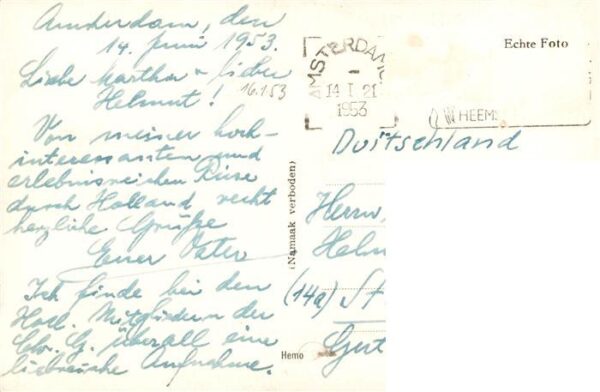 Amsterdam, den
14. Juni 1953.
Liebe Martha & lieber
Helmut!
16.1.53
Von meiner hoch-
interessanten und
erlebnisreichen Reise
durch Holland recht
herzliche Grüße
Euer Vater
Ich finde bei den
Holl. Mitgliedern der
Chr. G. überall eine
liebreiche Aufnahme.
(Namaak verboden)
Hemo
AMSTERDAM
14 I 21
1953
HEEMS
Echte Foto
Duitschland
Herrn
Helm
(14a) St
Gut